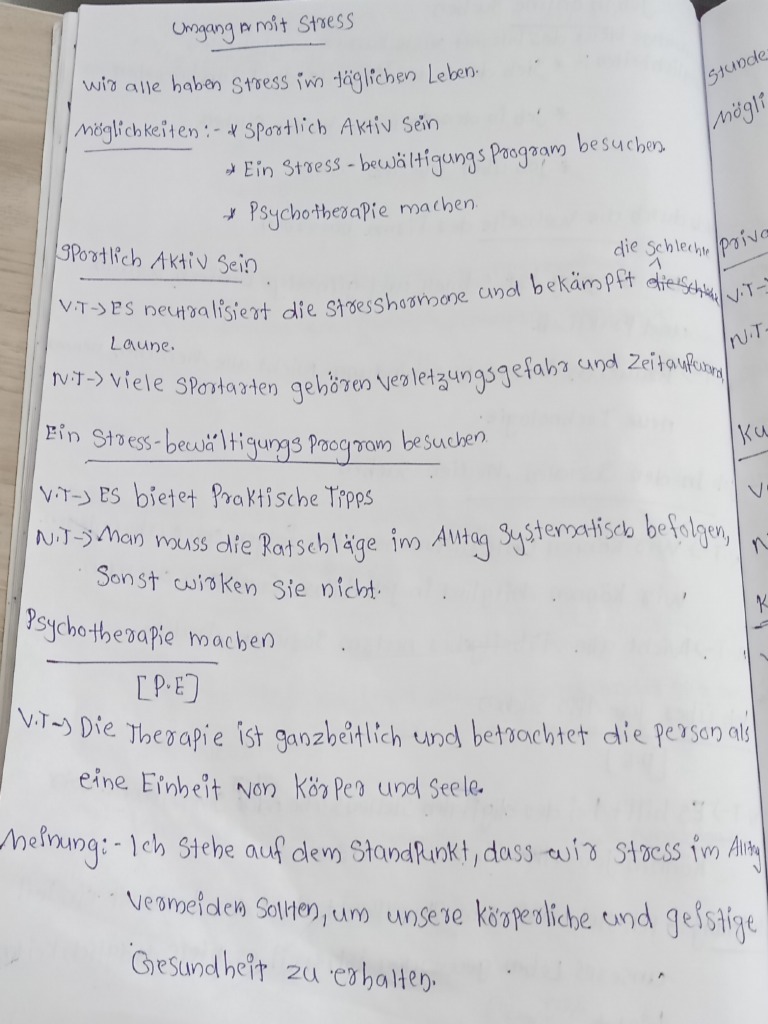 Umgang mit Stress
Wir alle haben Stress im täglichen Leben.
Möglichkeiten:- * Sportlich Aktiv Sein
* Ein Stress-bewältigungs Program besuchen.
* Psychotherapie machen.
Sportlich Aktiv Sein
die schlechte
V.T-> ES neutralisiert die Stresshormone und bekämpft
Laune.
N.T-> Viele Sportarten gehören Verletzungsgefahr und Zeitaufwand
Ein Stress-bewältigungs Program besuchen
V.T-> ES bietet Praktische Tipps
N.T-> Man muss die Ratschläge im Alltag Systematisch befolgen,
Sonst wirken Sie nicht.
Psychotherapie machen
[P.E]
V.T-> Die Therapie ist ganzheitlich und betrachtet die person als
eine Einheit von Körper und Seele.
Meinung:- Ich stehe auf dem Standpunkt, dass wir Stress im Alltag
vermeiden sollten, um unsere körperliche und geistige
Gesundheit zu erhalten.
Stunde
mögli
priva
V.T-
N.T-
Ku
V
N
K